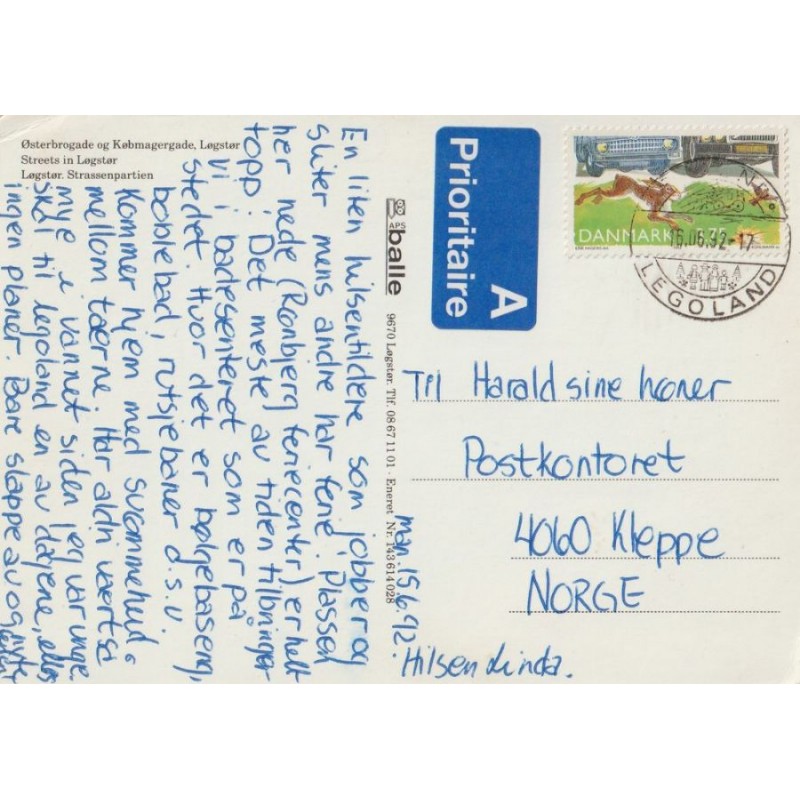 Østerbrogade og Købmagergade, Løgstør
Streets in Løgstør
Løgstør. Strassenpartien
En liten hilsen til dere som jobber og
sliter mens andre har ferie! Plassen
her nede (Rønbjerg feriecenter) er helt
topp! Det meste av tiden tilbringer
vi i badesenteret som er på
stedet. Hvor det er bølgebaseng,
boblebad, rutsjebaner o.s.v.
Kommer hjem med svømmehud
mellom tærne. Har aldri vært så
mye i vannet siden jeg var unge.
Skal til legoland en av dagene, ellers
ingen planer. Bare slappe av og nyte
man. 15.6.92.
Hilsen Linda.
APS
balle
9670 Løgstør. Tlf. 08 67 11 01 · Eneret Nr. 143 614 028
Prioritaire
A
DANMARK
16.06.92-17
LEGOLAND
Til Harald sine høner
Postkontoret
4060 Kleppe
NORGE